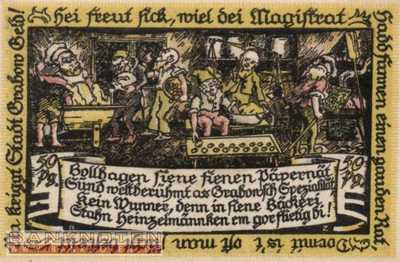 Hei freut sick, wiel dei Magistrat
Hadd funnen einen gauden Rat.
Damit is't oft man
kriggt Stadt Grabow Geld!
50
Pg.
50
Pg.
Bollhagen siene fienen Päpernät
Sünd weltberühmt as Grabowsch Spezialität
Kein Wunner, denn in siene Bäckeri
Stahn Heinzelmännken em gorstietig bi!
BANKNOTEN